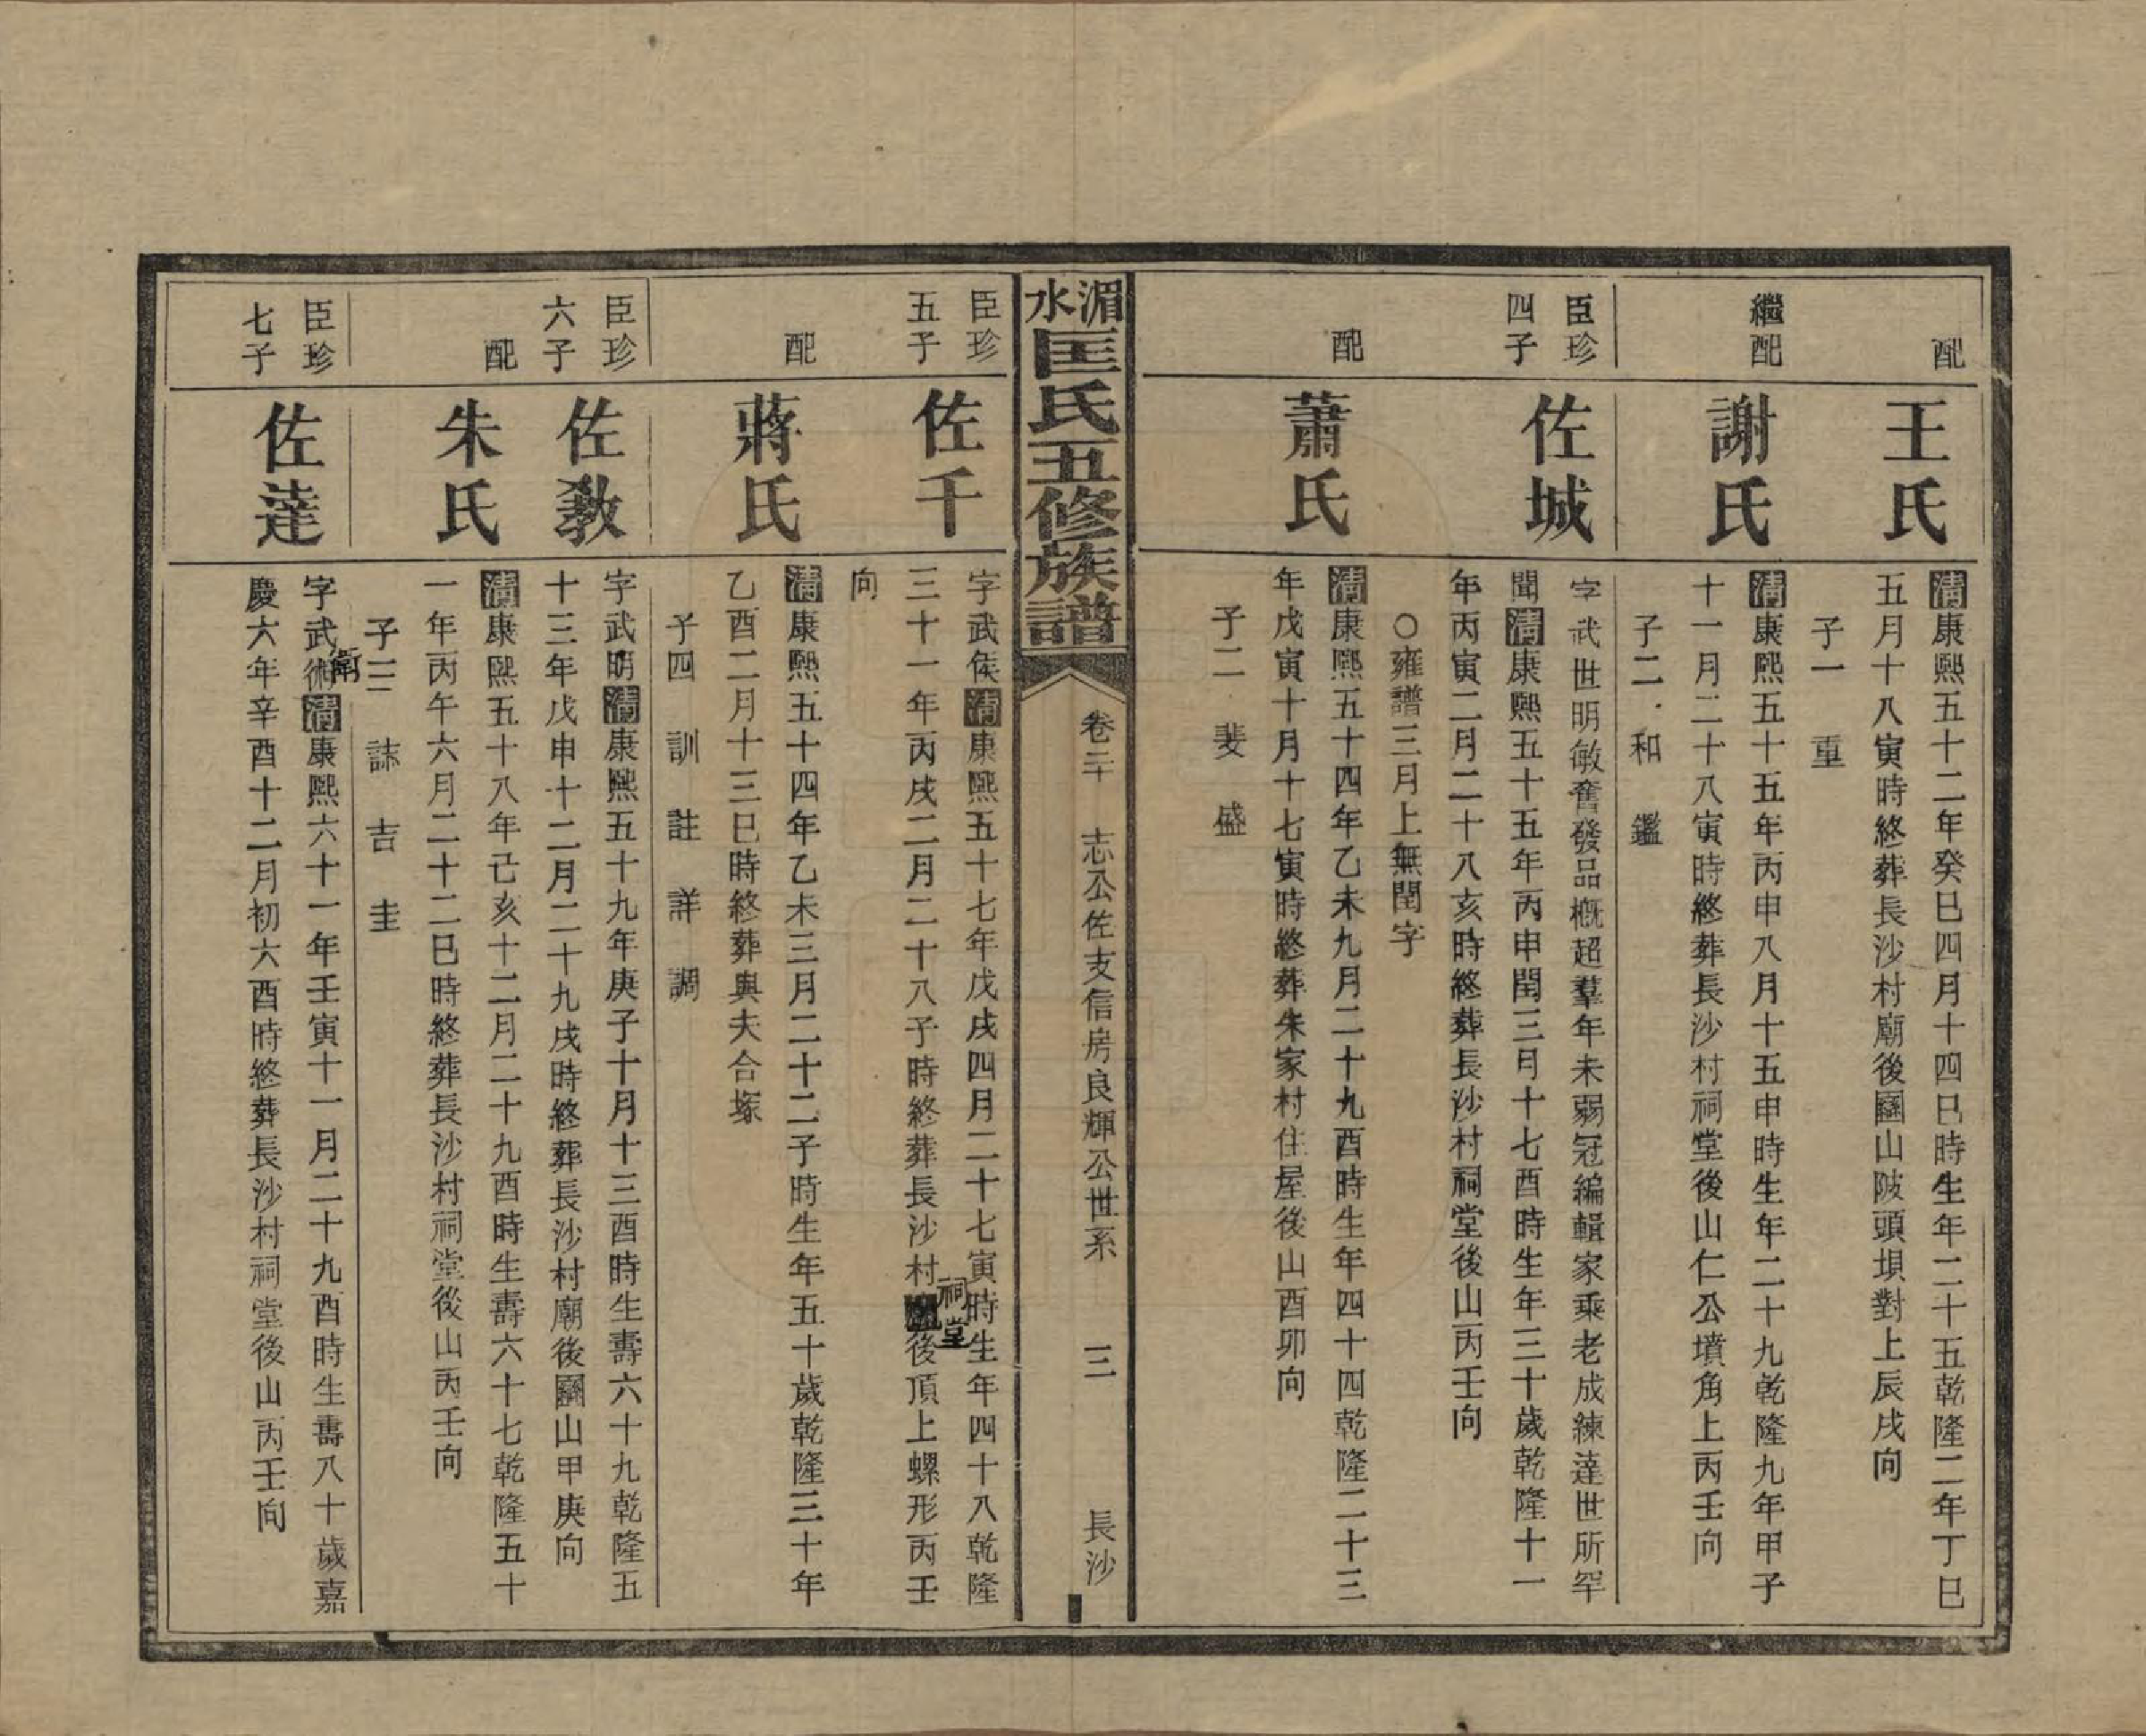 配
王氏
清康熙五十二年癸巳四月十四巳時生年二十五乾隆二年丁巳
五月十八寅時終葬長沙村廟後圞山陂頭垻對上辰戌向
子一　重
繼配
謝氏
清康熙五十五年丙申八月十五申時生年二十九乾隆九年甲子
十一月二十八寅時終葬長沙村祠堂後山仁公墳角上丙壬向
子二　和　鑑
臣珍
四子
佐城
字武世明敏奮發品概超羣年未弱冠編輯家乘老成練達世所罕
聞清康熙五十五年丙申閏三月十七酉時生年三十歲乾隆十一
年丙寅二月二十八亥時終葬長沙村祠堂後山丙壬向
○雍譜三月上無閏字
配
蕭氏
清康熙五十四年乙未九月二十九酉時生年四十四乾隆二十三
年戊寅十月十七寅時終葬朱家村住屋後山酉卯向
子二　斐　盛
湄水匡氏五修族譜
卷二十　志公佐支信房良輝公世系　三　長沙
臣珍
五子
佐千
字武侯清康熙五十七年戊戌四月二十七寅時生年四十八乾隆
三十一年丙戌二月二十八子時終葬長沙村祠堂後頂上螺形丙壬
向
配
蔣氏
清康熙五十四年乙未三月二十二子時生年五十歲乾隆三十年
乙酉二月十三巳時終葬與夫合塚
子四　訓　註　詳　調
臣珍
六子
佐教
字武明清康熙五十九年庚子十月十三酉時生壽六十九乾隆五
十三年戊申十二月二十九戌時終葬長沙村廟後圞山甲庚向
配
朱氏
清康熙五十八年己亥十二月二十九酉時生壽六十七乾隆五十
一年丙午六月二十二巳時終葬長沙村祠堂後山丙壬向
子三　誌　吉　圭
臣珍
七子
佐達
字武衛清康熙六十一年壬寅十一月二十九酉時生壽八十歲嘉
慶六年辛酉十二月初六酉時終葬長沙村祠堂後山丙壬向